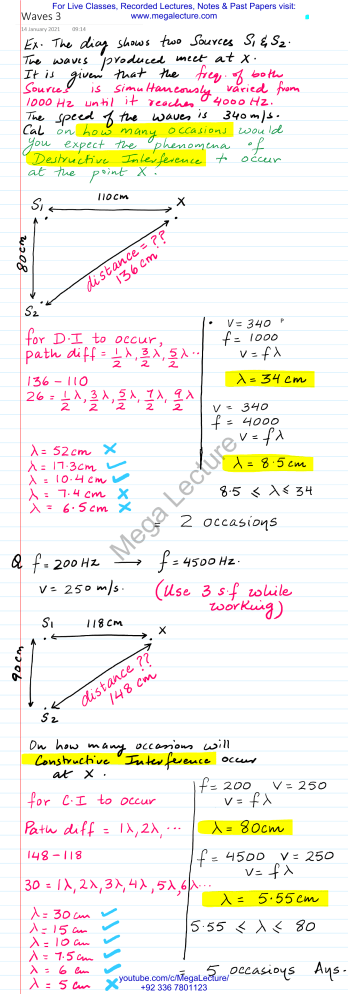 For Live Classes, Recorded Lectures, Notes & Past Papers visit:
www.megalecture.com
Waves 3
14 January 2021 09:14
Ex. The diag shows two Sources S1 & S2.
The waves produced meet at X.
It is given that the freq. of both
Sources is simultaneously varied from
1000 Hz until it reaches 4000 Hz.
The speed of the waves is 340 m/s.
Cal on how many occasions would
you expect the phenomena of
Destructive Interference to occur
at the point X.
110cm
S1
X
80cm
distance = ??
136 cm
S2
for D.I to occur,
path diff = 1/2 λ, 3/2 λ, 5/2 λ ...
136 - 110
26 = 1/2 λ, 3/2 λ, 5/2 λ, 7/2 λ, 9/2 λ
λ = 52cm ×
λ = 17.3cm ✓
λ = 10.4 cm ✓
λ = 7.4 cm ×
λ = 6.5 cm ×
v = 340
f = 1000
v = fλ
λ = 34 cm
v = 340
f = 4000
v = fλ
λ = 8.5cm
8.5 ≤ λ ≤ 34
= 2 occasions
Mega Lecture
Q f = 200 Hz → f = 4500 Hz.
v = 250 m/s. (Use 3 s.f while
working)
S1
118cm
X
90cm
distance ??
148 cm
S2
On how many occasions will
Constructive Interference occur
at X.
for C.I to occur
Path diff = 1λ, 2λ, ...
148 - 118
30 = 1λ, 2λ, 3λ, 4λ, 5λ, 6λ...
λ = 30 cm ✓
λ = 15 cm ✓
λ = 10 cm ✓
λ = 7.5 cm ✓
λ = 6 cm ✓
λ = 5 cm ×
f = 200 v = 250
v = fλ
λ = 80cm
f = 4500 v = 250
v = fλ
λ = 5.55cm
5.55 ≤ λ ≤ 80
= 5 occasions Ans.
youtube.com/c/MegaLecture/
+92 336 7801123